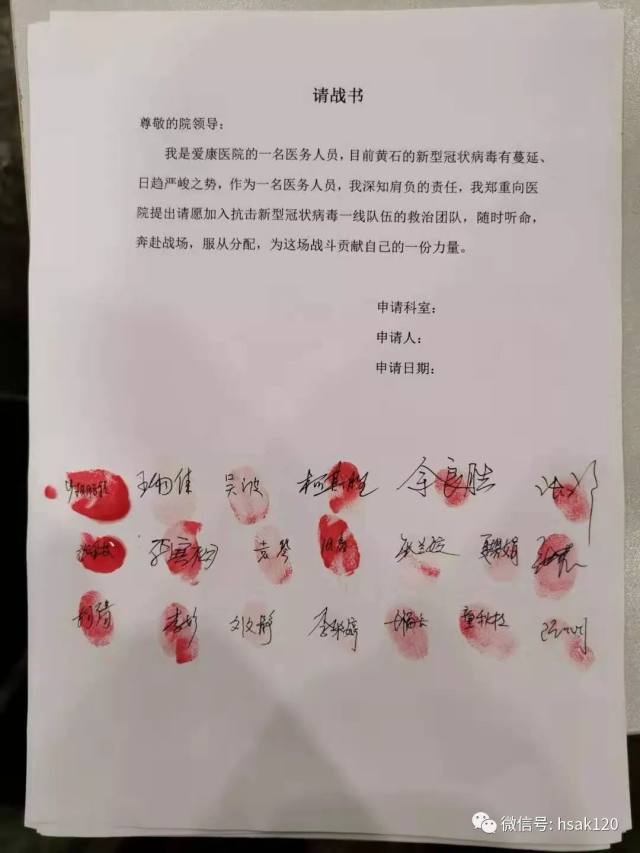 请战书
尊敬的院领导：
我是爱康医院的一名医务人员，目前黄石的新型冠状病毒有蔓延、
日趋严峻之势，作为一名医务人员，我深知肩负的责任，我郑重向医
院提出请愿加入抗击新型冠状病毒一线队伍的救治团队，随时听命，
奔赴战场，服从分配，为这场战斗贡献自己的一份力量。
申请科室：
申请人：
申请日期：
吴波 余良胜
袁琴
李彭 刘文静 童秋枝
微信号: hsak120